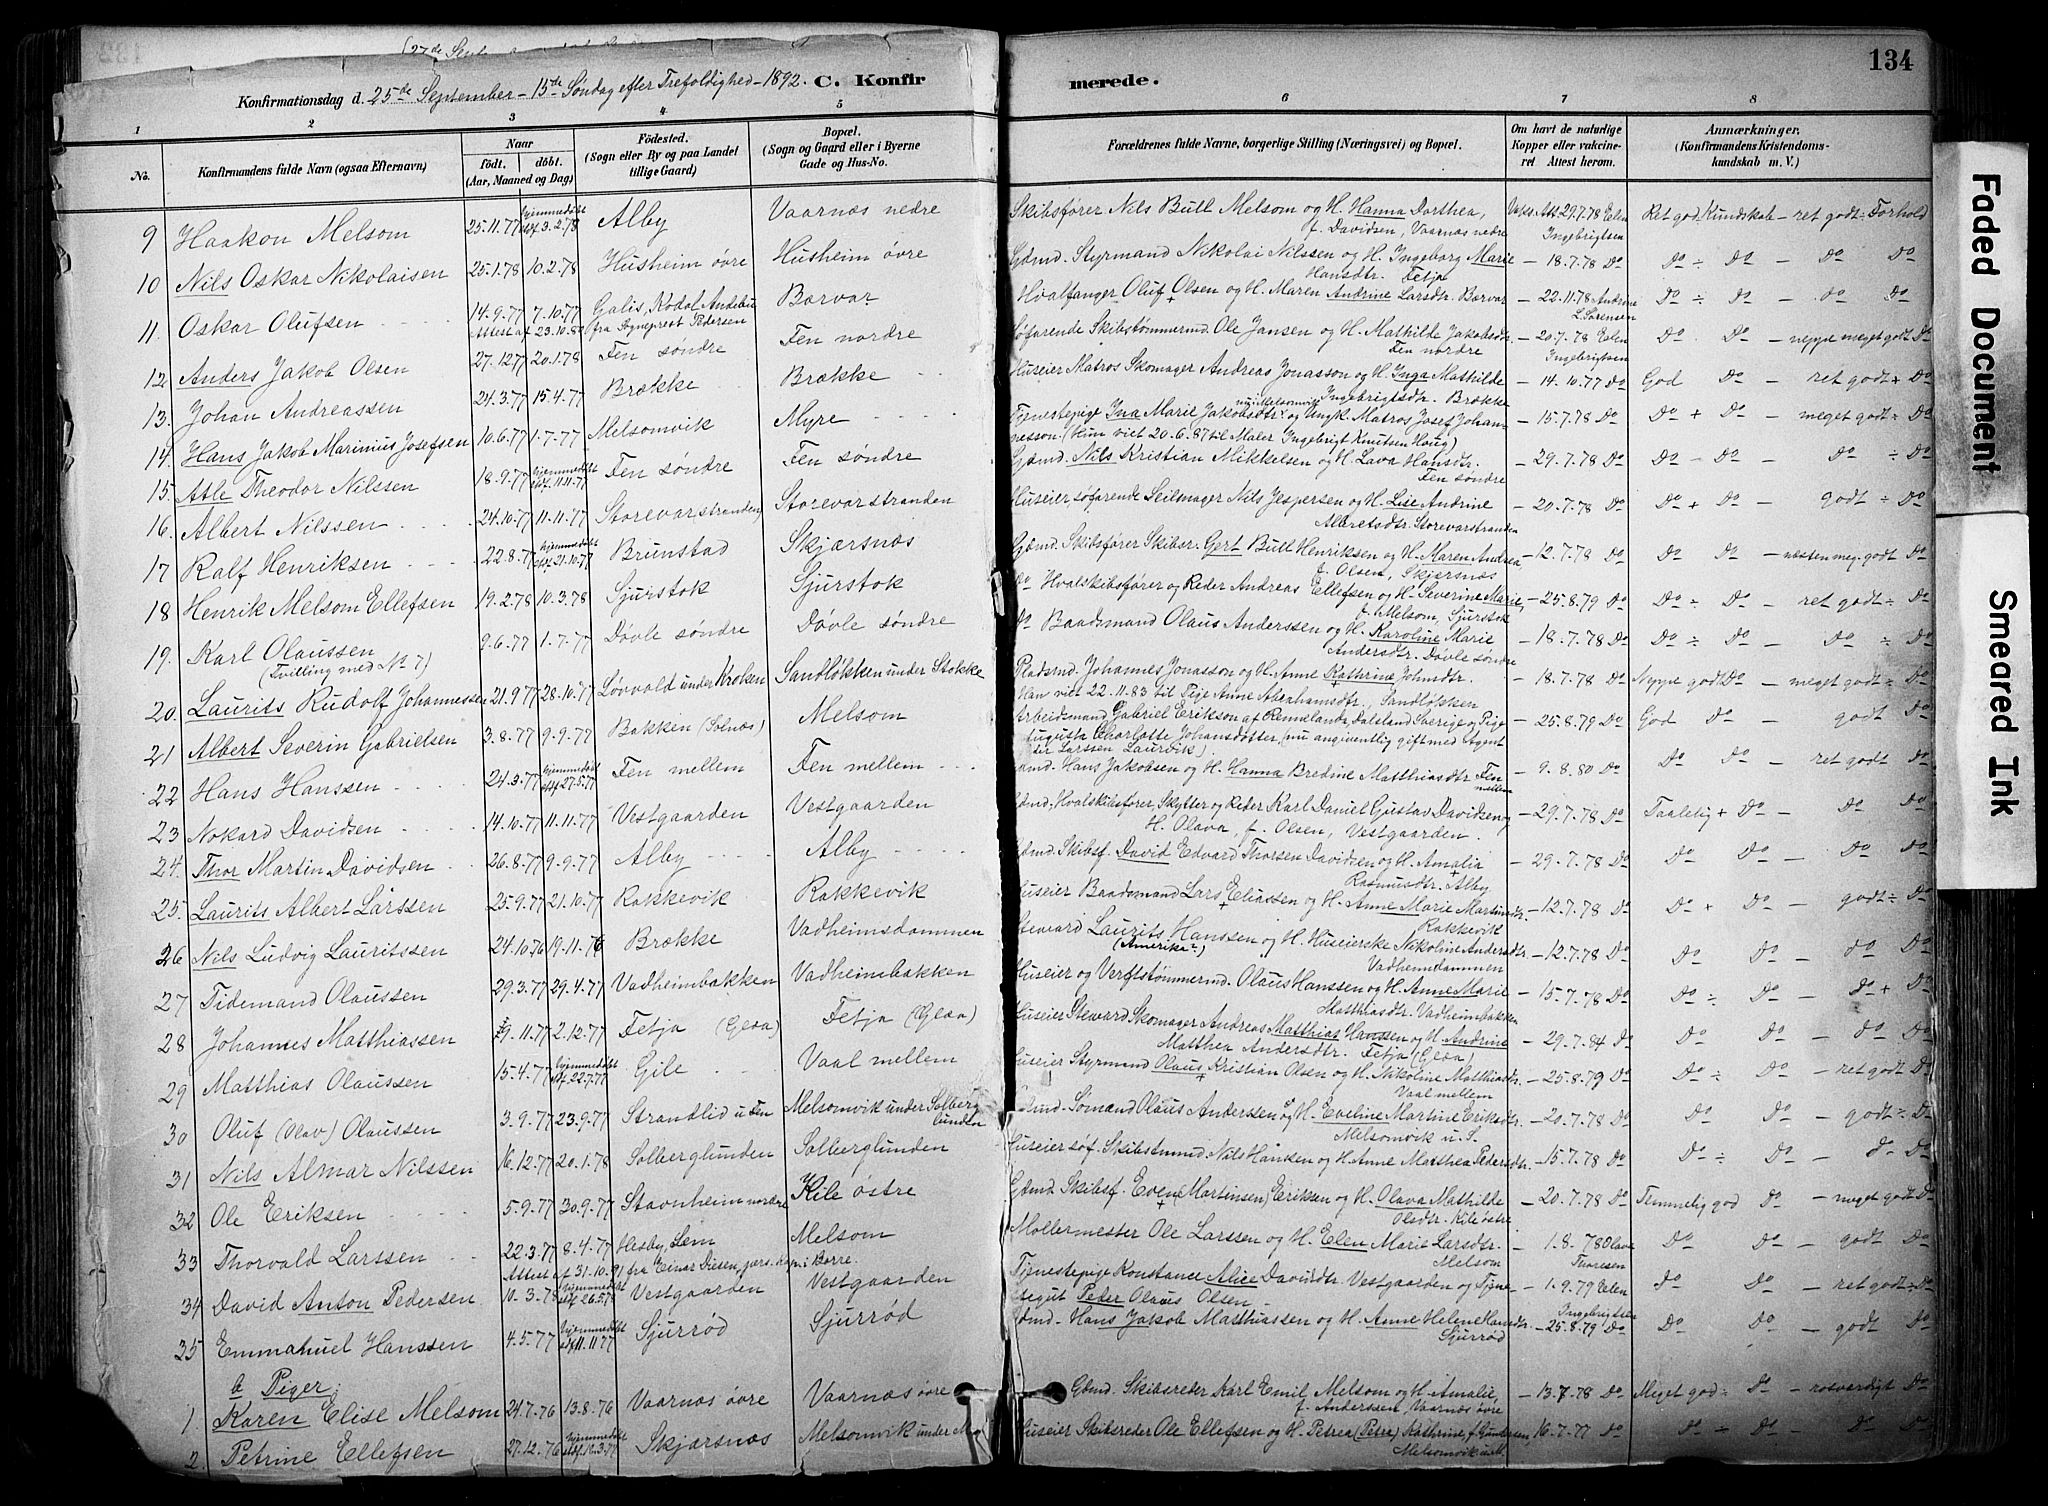 134
Konfirmationsdag d. 25de September - 15de Søndag efter Trefoldighed - 1892. C. Konfirmerede.
1 2 3 4 5 6 7 8
No. Konfirmandens fulde Navn (ogsaa Efternavn) Naar født, døbt. (Aar, Maaned og Dag) Fødested. (Sogn eller By og paa Landet tillige Gaard) Bopæl. (Sogn og Gaard eller i Byerne Gade og Hus-No. Forældrenes fulde Navne, borgerlige Stilling (Næringsvei) og Bopæl. Om havt de naturlige Kopper eller vakcineret Attest herom. Anmærkninger. (Konfirmandens Kristendomskundskab m. V.)
9 Haakon Melsom 25.11.77 hjemmedøbt 3.2.78 Alby Vaarnæs nedre Skibsfører Nils Bull Melsom og H. Hanna Dorthea, f. Davidsen, Vaarnæs nedre 29.7.78 Elen Ingebrigtsen Ret god Kundskab - ret godt ÷ Forhold
10 Nils Oskar Nikolaisen 25.1.78 10.2.78 Husheim øvre Husheim øvre Gbmd. Styrmand Nikolai Nilssen og H. Ingeborg Marie Hansdtr. Fetja - 18.7.78 Do Do ÷ Do - Do Do
11. Oskar Olufsen 14.9.77 7.10.77 Galis, Kodal, Andebu Borvar Hvalfanger Oluf Olsen og H. Maren Andrine Larsdtr. Borvar - 22.11.78 Andrine L. Sørensen Do ÷ Do - Do Do
Attest af 23.10.80 fra Sogneprest Pedersen
12 Anders Jakob Olsen 27.12.77 20.1.78 Fen søndre Fen nordre Søfarende Skibstømmermd. Ole Jansen og H. Mathilde Jakobsdtr. Fen nordre - 20.7.78 Elen Ingebrigtsen Do Do - neppe meget godt Do
13. Johan Andreassen 24.3.77 15.4.77 Brække Brække Huseier Matros Skomager Andreas Jonasson og H. Inga Mathilde Ingebrigtsdtr. Brække - 14.10.77 Do God Do - ret godt + Do
14. Hans Jakob Marinius Josefsen 10.6.77 1.7.77 Melsomvik Myre Tjenestepige Ina Marie Jakobsdtr. og Ungk. Matros Josef Johannesson. (Hun viet 20.6.87 til Maler Ingebrigt Knutsen Haug) - 15.7.78 Do Do + Do - meget godt ÷ Do
15. Atle Theodor Nilssen 18.9.77 hjemmedøbt 11.11.77 Fen søndre Fen søndre Gbmd. Nils Kristian Mikkelsen og H. Lava Hansdtr. Fen søndre - 29.7.78 Do Do - Do - Do ÷ Do
16. Albert Nilssen 24.10.77 11.11.77 Storevarstranden Storevarstranden Huseier, søfarende Seilmager Nils Jespersen og H. Lise Andrine Albretsdtr. Storevarstranden - 20.7.78 Do Do + Do - godt ÷ Do
17 Ralf Henriksen 22.8.77 hjemmedøbt 21.10.77 Brunstad Skjærsnæs Gbmd. Skibsfører Skibsr. Gert Bull Henriksen og H. Maren Andrea f. Olsen, Skjærsnæs - 12.7.78 Do Do Do - næsten meg. godt Do
18 Henrik Melsom Ellefsen 19.2.78 10.3.78 Sjurstok Sjurstok Do Hvalskibsfører og Reder Andreas Ellefsen og H. Severine Marie, f. Melsom, Sjurstok - 25.8.79 Do Do ÷ Do - ret godt ÷ Do
19. Karl Olaussen 9.6.77 1.7.77 Døvle søndre Døvle søndre Do Baadsmand Olaus Anderssen og H. Karoline Marie Andersdtr. Døvle søndre - 18.7.78 Do Do ÷ Do - Do ÷ Do
(Tvilling med No 7)
20. Laurits Rudolf Johannessen 21.9.77 28.10.77 Løvvald under Kroken Sandløkken under Stokke Pladsmd. Johannes Jonasson og H. Anne Kathrine Johndtr. Han viet 22.11.83 til Pige Anne Abrahamsdtr., Sandløkken - 18.7.78 Do Neppe godt Do - meget godt ÷ Do
21 Albert Severin Gabrielsen 3.8.77 9.9.77 Bakken (Solnæs) Melsom Arbeidsmand Gabriel Erikson af Rennelanda, Dalsland Sverige og Pige Augusta Charlotte Johansdotter, (nu angiventlig gift med Agent Larssen Laurvik). - 25.8.79 Do God Do - godt Do
22 Hans Hanssen 24.3.77 hjemmedøbt 27.5.77 Fen mellem Fen mellem Gbmd. Hans Jakobsen og H. Hanna Bredine Matthiasdtr. Fen mellem - 9.8.80 Do Do Do - ret godt Do
23 Nokard Davidsen 14.10.77 11.11.77 Vestgaarden Vestgaarden Gbmd. Hvalskibsfører, Skytter og Reder Karl Daniel Gustav Davidsen og H. Olava, f. Olsen, Vestgaarden. - 29.7.78 Do Taalelig + Do - Do Do
24. Thor Martin Davidsen 26.8.77 9.9.77 Alby Alby Gbmd. Skibsf. David Edvard Thorsen Davidsen og H. Amalia Rasmusdtr. Alby - 29.7.78 Do Do Do - Do Do
25. Laurits Albert Larssen 25.9.77 21.10.77 Rakkevik Rakkevik Huseier Baadsmand Lars Eliassen og H. Anne Marie Martinsdtr. Rakkevik - 12.7.78 Do Do + Do - godt ÷ Do
26 Nils Ludvig Lauritssen 24.10.76 19.11.76 Brække Vadheimsdammen Steward Laurits Hanssen (Amerika?) og H. Huseierske Nikoline Andersdtr. Vadheimdammen - 12.7.78 Do Do Do - Do Do
27 Tidemand Olaussen 29.3.77 29.4.77 Vadheimbakken Vadheimbakken Huseier og Verftstømmermd. Olaus Hanssen og H. Anne Marie Matthiasdtr. Vadheimbakken - 15.7.78 Do Do ÷ Do - Do + Do
28 Johannes Matthiassen 9.11.77 2.12.77 Fetja (Glea) Fetja (Glea) Huseier Steward Skomager Andreas Matthias Hanssen og H. Andrine Matthea Andersdtr. Fetja (Glea) - 29.7.84 Do Do Do - Do Do
29 Matthias Olaussen 15.4.77 hjemmedøbt 22.7.77 Gile Vaal mellem Huseier Styrmand Olaus Kristian Olsen og H. Nikoline Matthiasdtr. Vaal mellem - 25.8.79 Do Do ÷ Do - ret godt Do
30 Oluf (Olav) Olaussen 3.9.77 23.9.77 Strandlid u. Fen Melsomvik under Solberglunden Gbmd. Sømand Olaus Anderssen og H. Eveline Martine Eriksdtr. Melsomvik u. S. - 20.7.78 Do Do Do - godt ÷ Do
31 Nils Almar Nilssen 16.12.77 20.1.78 Solberglunden Solberglunden Huseier søf. Skibstmmd Nils Hansen og H. Anne Matthea Pedersdtr. - 15.7.78 Do Do ÷ Do - Do Do
32 Ole Eriksen 5.9.77 30.9.77 Stavnheim nordre Kile østre Gbmd. Skibsf. Even (Martinsen) Eriksen og H. Olava Mathilde Olsdtr. Kile østre - 20.7.78 Do Temmelig god Do - meget godt Do
33 Thorvald Larssen 22.3.77 8.4.77 Hesby, Sem Melsom Møllermester Ole Larssen og H. Elen Marie Larsdtr. Melsom - 1.8.78 Olava Thoresen Do Do - godt Do
Attest af 31.10.91 fra Einar Diesen, pers. Kapn. i Borre.
34 David Anton Pedersen 10.3.78 hjemmedøbt 26.5.78 Vestgaarden Vestgaarden Tjenestepige Konstance Alice Davidsdtr. Vestgaarden og Tjenestegut Peder Olaus Olsen - 1.9.79 Elen Ingebrigtsen Do Do - ret godt ÷ Do
35 Emmanuel Hanssen 4.5.77 hjemmedøbt 11.11.77 Sjurrød Sjurrød Gbmd. Hans Jakob Matthiassen og H. Anne Helene Hansdtr. Sjurrød - 25.8.79 Do Do Do - godt Do
b Piger;
1. Karen Elise Melsom 24.7.76 13.8.76 Vaarnæs øvre Vaarnæs øvre Gbmd. Skibsreder Karl Emil Melsom og H. Amalie, f. Anderssen, Vaarnæs øvre - 13.7.78 Do Meget god ÷ Do - rosværdigt Do
2. Petrine Ellefsen 27.12.76 hjemmedøbt Skjærsnæs Melsomvik under Huseier Skibsreder Ole Ellefsen og H. Petrea (Petra) Kathrine, f. Gundersen, Melsomvik u. M. - 16.7.77 Do Do ÷ Do - Do Do
Faded Document
Smeared Ink